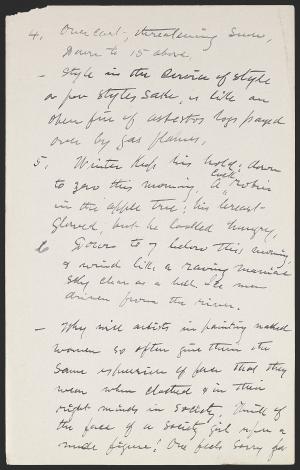 4. Overcast, threatening snow,
Down to 15 above,
- Style in the service of style
or for styles sake, is like an
open fire of asbestos logs
over by gas flames,
5. Winter keeps his hold; down
to zero this morning, A cock robin
in the apple tree; his breast
glowed, but he looked hungry,
6 Down to 7 below this morning,
& wind like a raving maniac
sky clear as a bell. Ice men
driven from the river.
- Why will artists in painting naked
women so often give them the
same expression of face that they
wear when clothed & in their
right minds in society. Think of
the face of a society girl upon a
nude figure! One feels sorry for